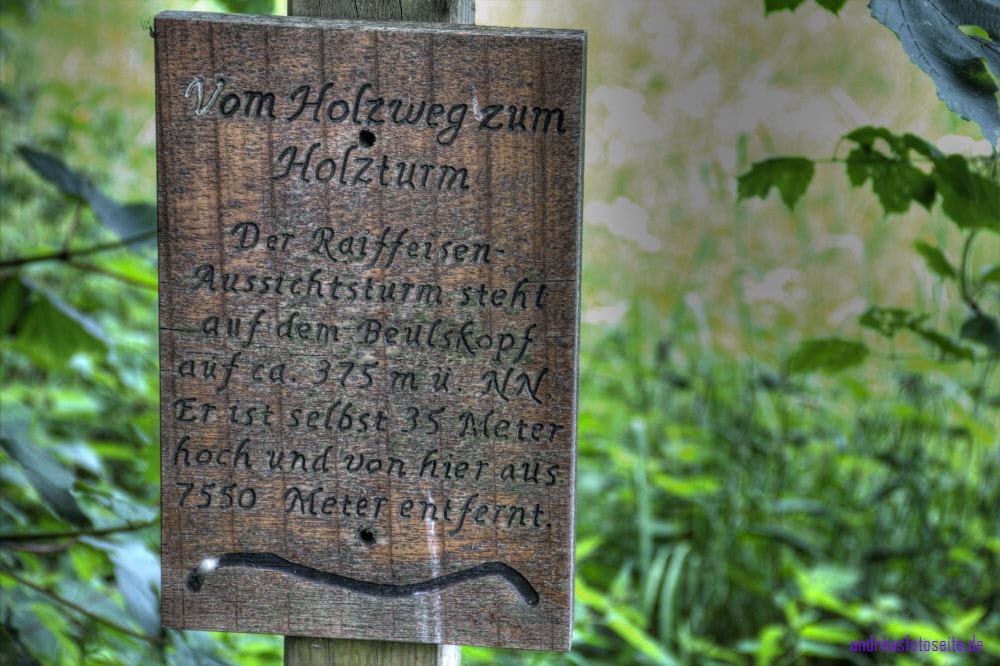 Vom Holzweg zum
Holzturm
Der Raiffeisen-
Aussichtsturm steht
auf dem Beulskopf
auf ca. 375 m ü. NN.
Er ist selbst 35 Meter
hoch und von hier aus
7550 Meter entfernt.
andreasfotoseite.de